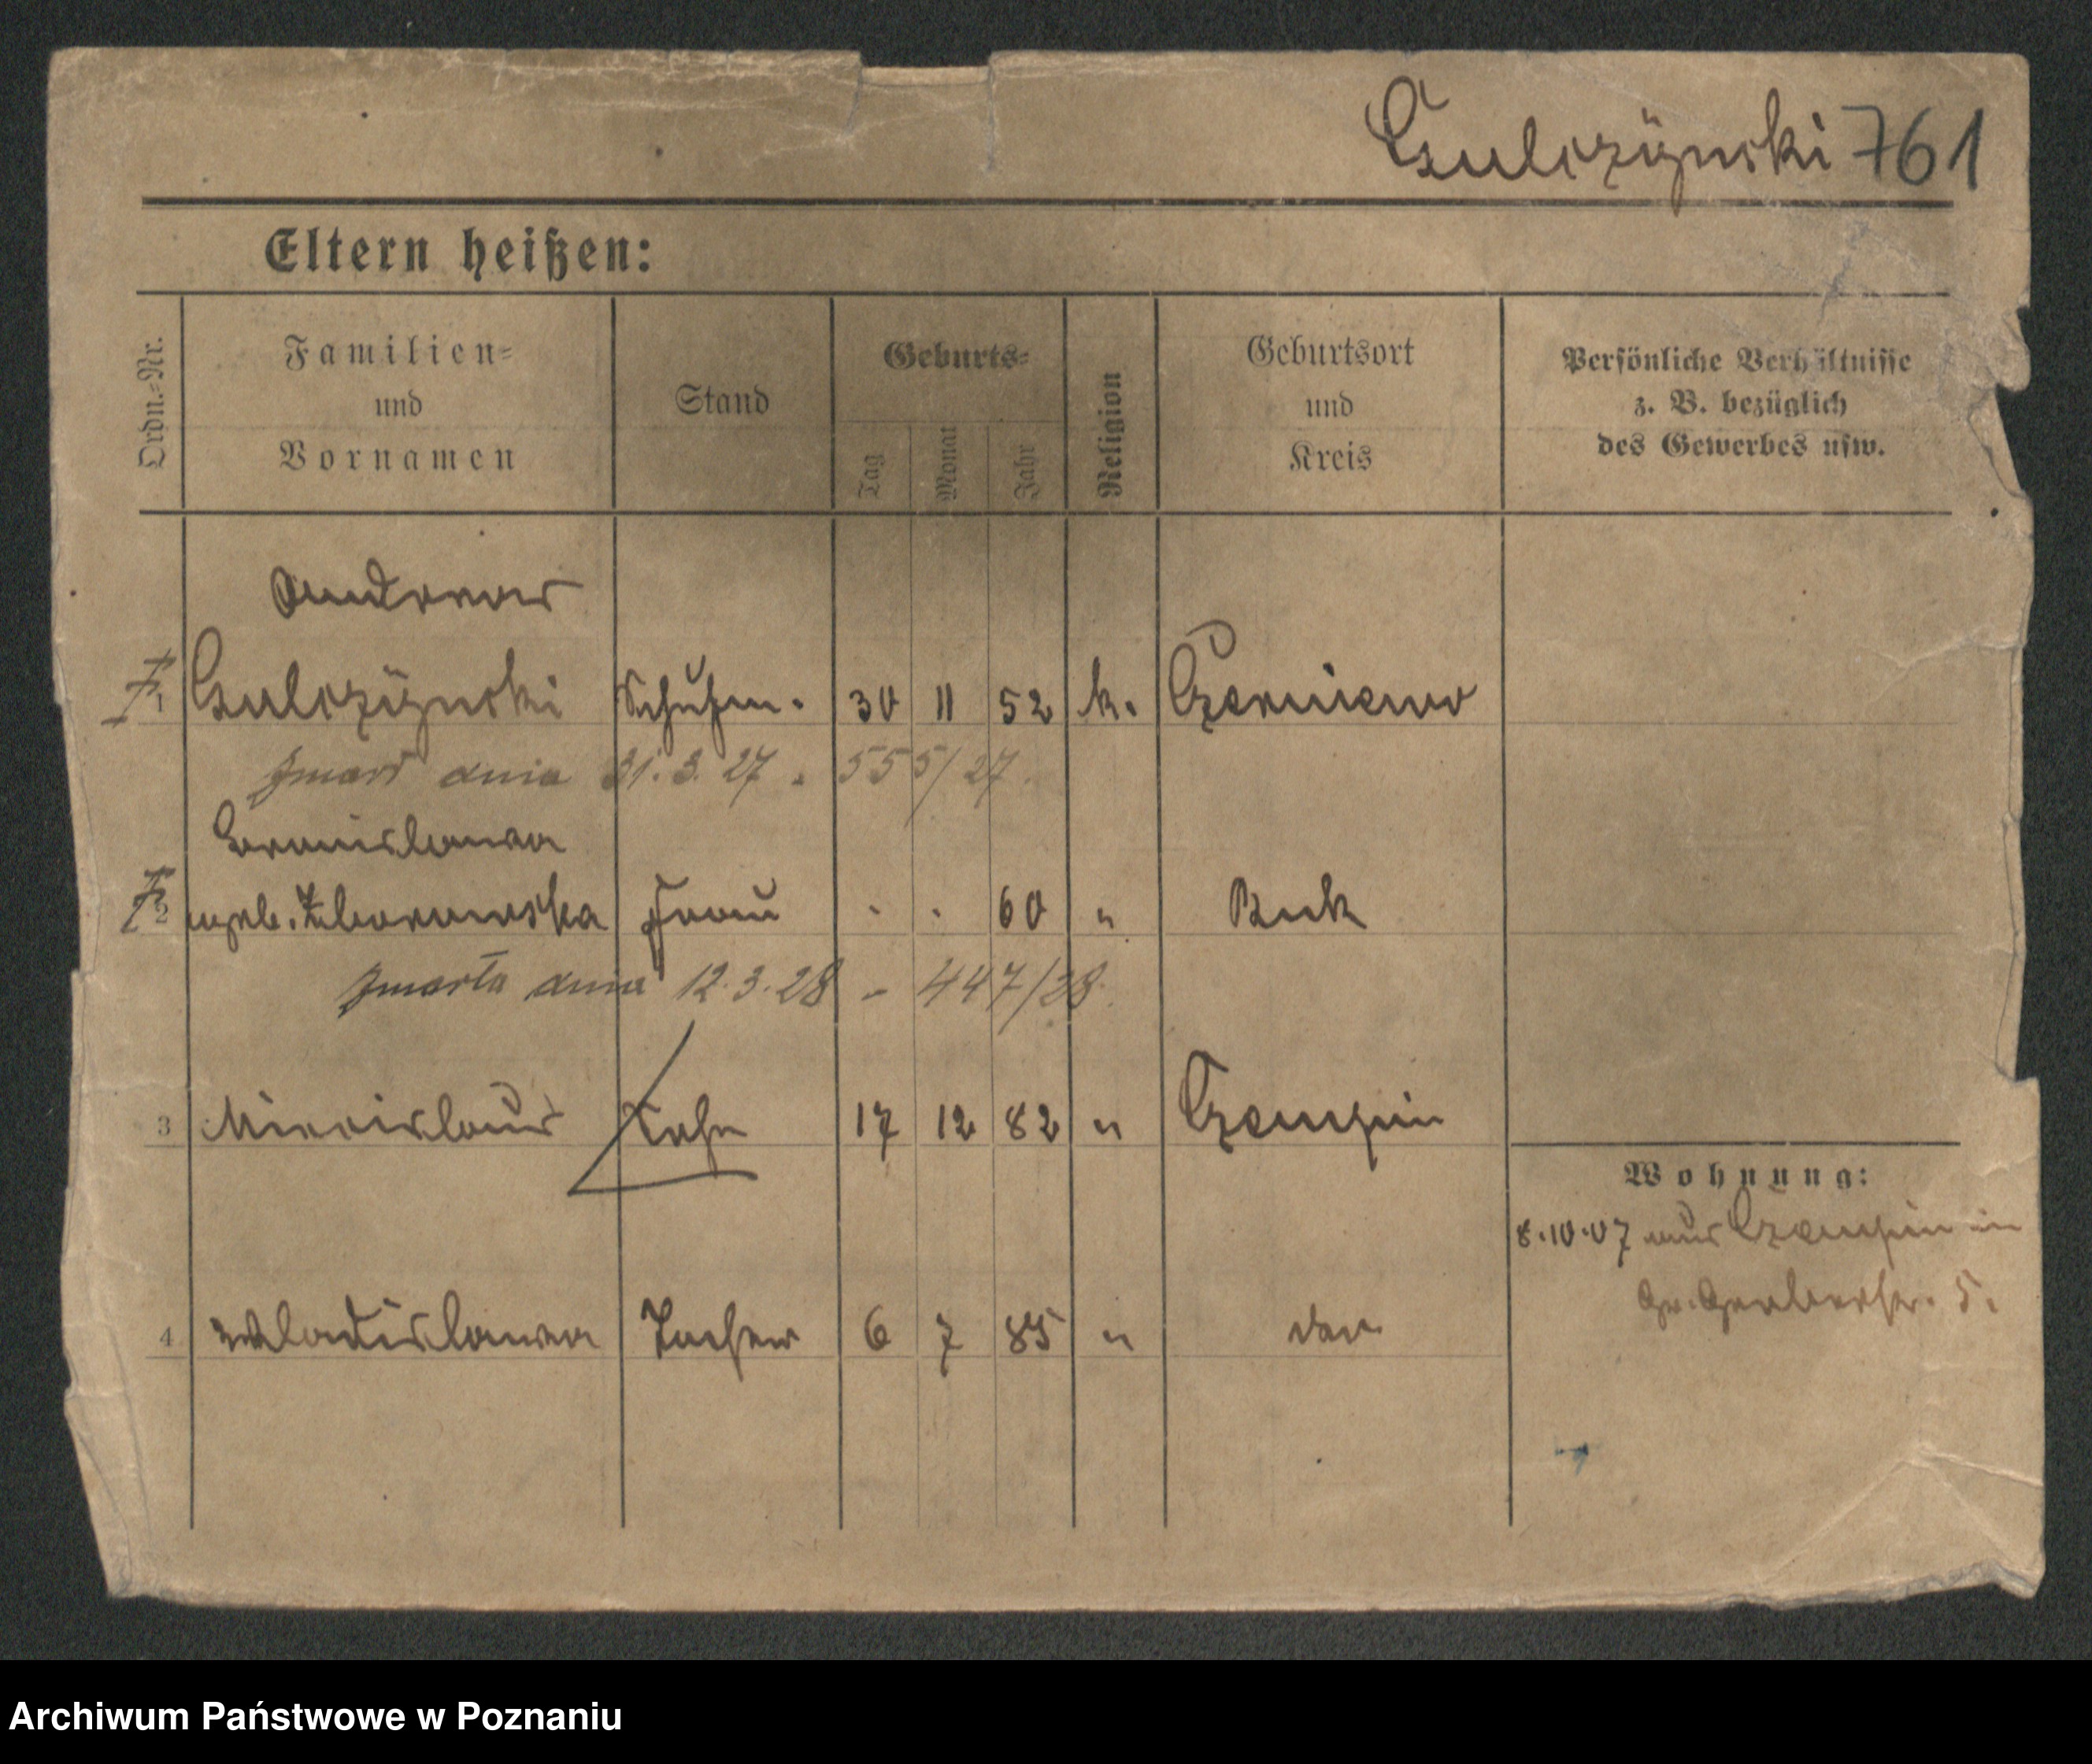 Gulczÿnski 761
Eltern heißen:
Ordn.-Nr.
Familien-
und
Vornamen
Stand
Geburts-
Tag
Monat
Jahr
Religion
Geburtsort
und
Kreis
Persönliche Verhältnisse
z. B. bezüglich
des Gewerbes usw.
Andreas
1 Gulczÿnski Schuhm. 30 11 52 k.
zmarł dnia 31.3.27. 555/27
Bronislawa
2 geb. Zborowska Frau - - 60 " Buk
zmarła dnia 12.3.28 - 447/28
3 Miecislaus Sohn 17 12 82 " Czempin
Wohnung:
8.10.07 aus Czempin in
Gr. Gerberstr. 5.
4 Wladislawa Tochter 6 7 85 "
Archiwum Państwowe w Poznaniu